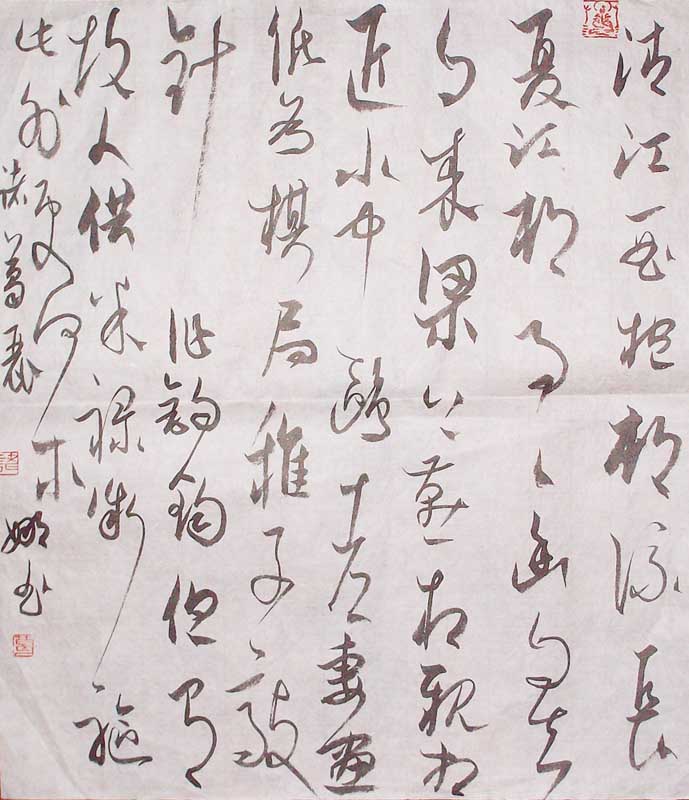 清江一曲抱村流長
夏江村事々幽自去
自来梁上燕相親相
近水中鷗老妻畫
紙為棋局稚子敲
針作釣鉤但有
故人供米祿微軀
此外更何求
诸葛丽娜书